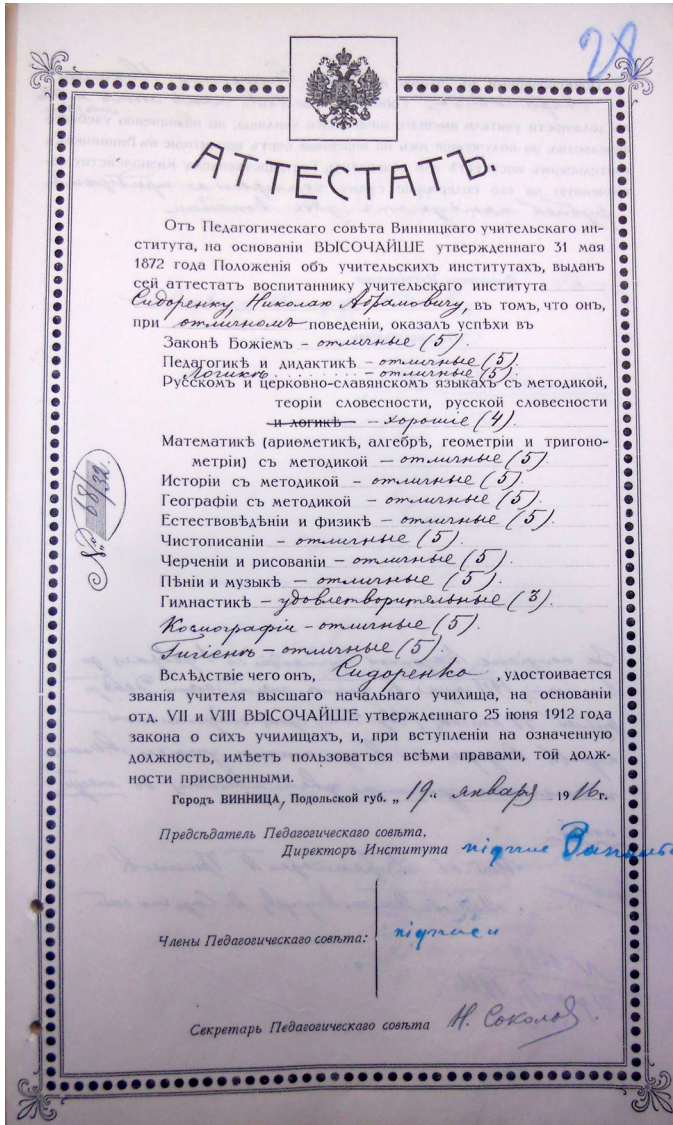 28
АТТЕСТАТЪ.
Отъ Педагогическаго совѣта Винницкаго учительскаго ин-
ститута, на основаніи ВЫСОЧАЙШЕ утвержденнаго 31 мая
1872 года Положенія объ учительскихъ институтахъ, выданъ
сей аттестатъ воспитаннику учительскаго института
Сидоренку, Николаю Абрамовичу, въ томъ, что онъ,
при отличномъ поведеніи, оказалъ успѣхи въ
Законѣ Божіемъ – отличные (5).
Педагогикѣ и дидактикѣ – отличные (5)
Логикѣ – отличные (5).
Русскомъ и церковно-славянскомъ языкахъ съ методикой,
теоріи словесности, русской словесности
и логикѣ – хорошіе (4).
Математикѣ (ариѳметикѣ, алгебрѣ, геометріи и тригоно-
метріи) съ методикой – отличные (5).
Исторіи съ методикой – отличные (5).
Географіи съ методикой – отличные (5).
Естествовѣдѣніи и физикѣ – отличные (5).
Чистописаніи – отличные (5).
Черченіи и рисованіи – отличные (5).
Пѣніи и музыкѣ – отличные (5).
Гимнастикѣ – удовлетворительные (3).
Космографіи – отличные (5).
Гигіенѣ – отличные (5).
Вслѣдствіе чего онъ, Сидоренко, удостоивается
званія учителя высшаго начальнаго училища, на основаніи
отд. VII и VIII ВЫСОЧАЙШЕ утвержденнаго 25 іюня 1912 года
закона о сихъ училищахъ, и, при вступленіи на означенную
должность, имѣетъ пользоваться всѣми правами, той долж-
ности присвоенными.
Городъ ВИННИЦА, Подольской губ. „19„ января 1916 г.
Предсѣдатель Педагогическаго совѣта,
Директоръ Института підпис
Члены Педагогическаго совѣта: підписи
Секретарь Педагогическаго совѣта Н. Соколов
№ 68/32